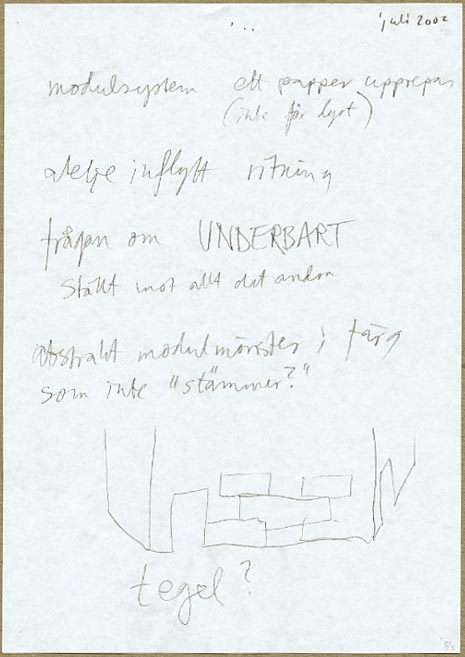 juli 2002
...
modulsystem ett papper upprepas
(inte för dyrt)
atelje inflytt ritning
frågan om UNDERBART
ställt mot allt det andra
abstrakt modulmönster i färg
som inte "stämmer?"
tegel?